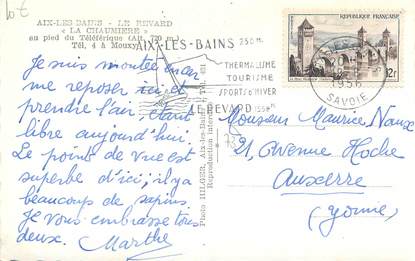 10€
AIX-LES-BAINS - LE REVARD
« LA CHAUMIERE »
au pied du Téléférique (Alt. 720 m.)
Tél. 4 à Mouxy
Je suis montée
me reposer ici et
prendre l'air, étant
libre aujourd'hui.
Le point de vue est
superbe d'ici; il y a
beaucoup de sapins.
Je vous embrasse tous
deux. Marthe
Photo HELGER, Aix-les-Bains, Tél. 61
Reproduction interdite
AIX-LES-BAINS 250 M.
THERMALISME
TOURISME
SPORTS D'HIVER
LE REVARD 1550 M.
REPUBLIQUE FRANÇAISE
12F
1956
SAVOIE
Monsieur Maurice
21, Avenue Hoche
Auxerre
(Yonne)